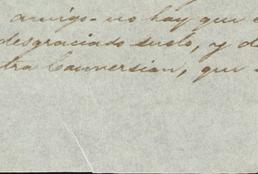 amigo - no hay que
desgraciado suelo, y de
tra Conversion, que